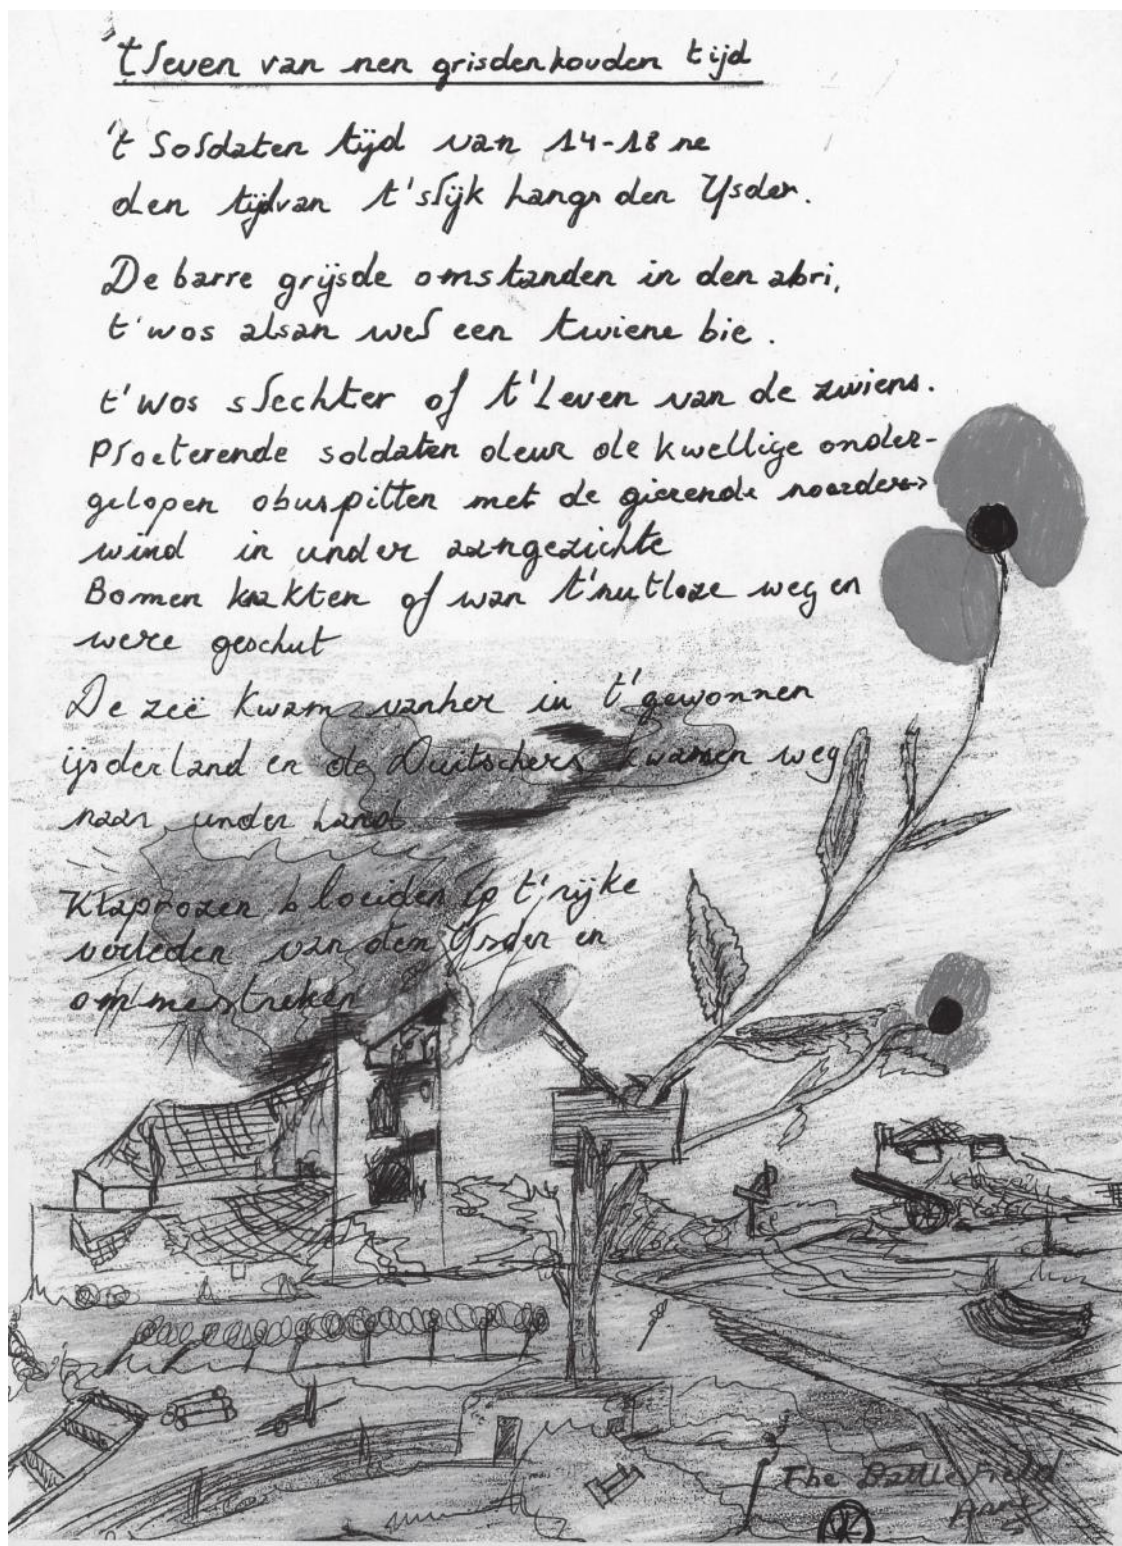 't leven van nen grisdenkouden tijd
't Soldaten tijd van 14-18 ne
den tijdvan t'slijk hangs den Ysder.
De barre grijsde omstanden in den abri,
t'wos alsan wel een twiene bie.
t'wos slechter of t'Leven van de zwiens.
Ploeterende soldaten deur de kwellige onder-
gelopen obuspitten met de gierende noorder->
wind in under aangezichte
Bomen krakten of wan t'nutloze weg en
were geschut
De zeë kwam vanher in t'gewonnen
ijsderland en de Duitschers kwamen weg
naar under hand
Klaprozen bloeiden ip t'rijke
verleden van den Ysder en
ommestreken
The Battlefield